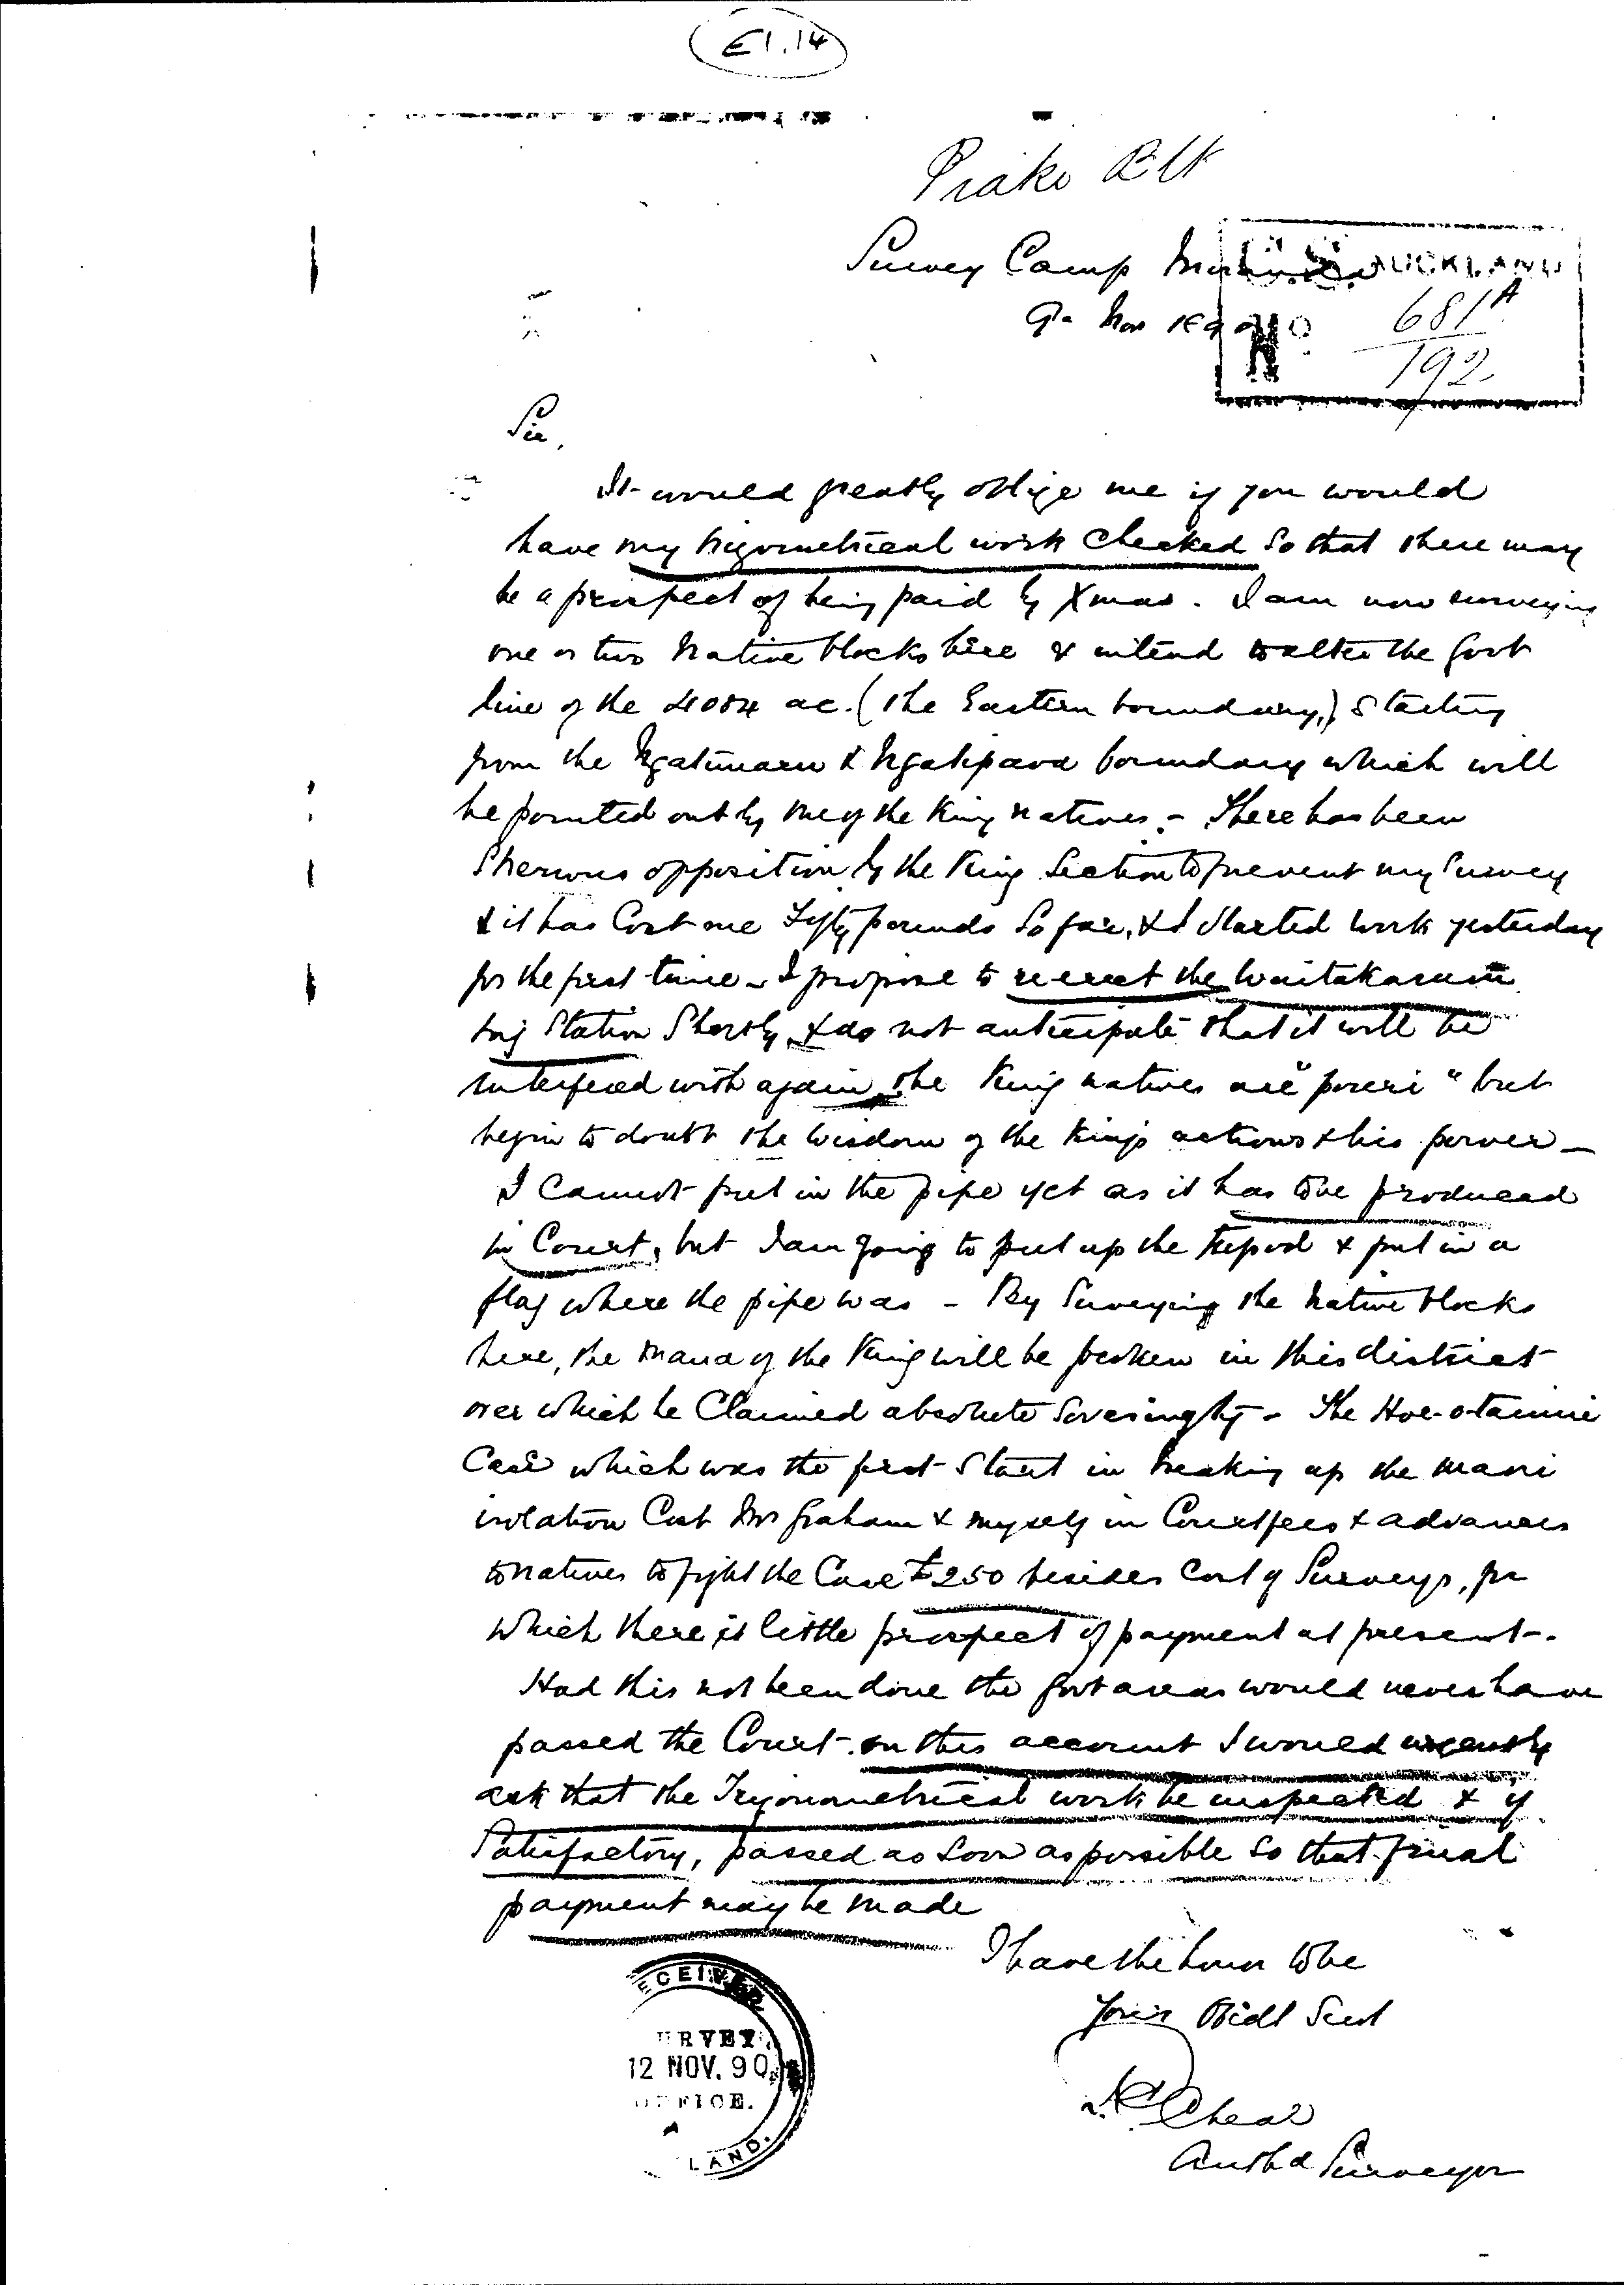 E1.14
Piako Blk
Survey Camp
9- Nov 1890
AUCKLAND
No 681A
192
Sir,
It would greatly oblige me if you would
have my trigometrical work checked so that there may
be a prospect of being paid by Xmas. I am now surveying
one or two Native blocks here & intend to alter the Govt
line of the 4084 ac. (the Eastern boundary,) starting
from the Ngatimaru & Ngatipaoa boundary which will
be pointed out by one of the King natives. - There has been
strenous opposition by the King Section to prevent my survey
& it has Cost me Fifty pounds so far, & I started work yesterday
for the first time - I propose to re-erect the Waitakaruru
trig Station Shortly, & do not anticipate that it will be
interfered with again, the King natives are "poreri" but
begin to doubt the wisdom of the King's actions & his power -
I Cannot put in the pipe yet as it has to be produced
in Court, but I am going to put up the tripod & put in a
flag where the pipe was - By Surveying the Native blocks
here, the mana of the King will be broken in this district
over which he Claimed absolute - The Hoe-o-tainui
Case which was the first start in breaking up the maori
isolation Cost Mr Graham & myself in Court fees & advances
to natives to fight the Case £250 besides cost of Surveys, for
which there is little prospect of payment at present -.
Had this not been done the Govt areas would never have
passed the Court - on this account I would urgently
ask that the Trigonometrical work be inspected & if
Satisfactory, passed as soon as possible so that final
payment may be made
I have the honor to be
Your Obdt Servt
Cheal
Authd Surveyor
ECEIVED
URVEY
12 NOV. 90
OFFICE.
LAND.